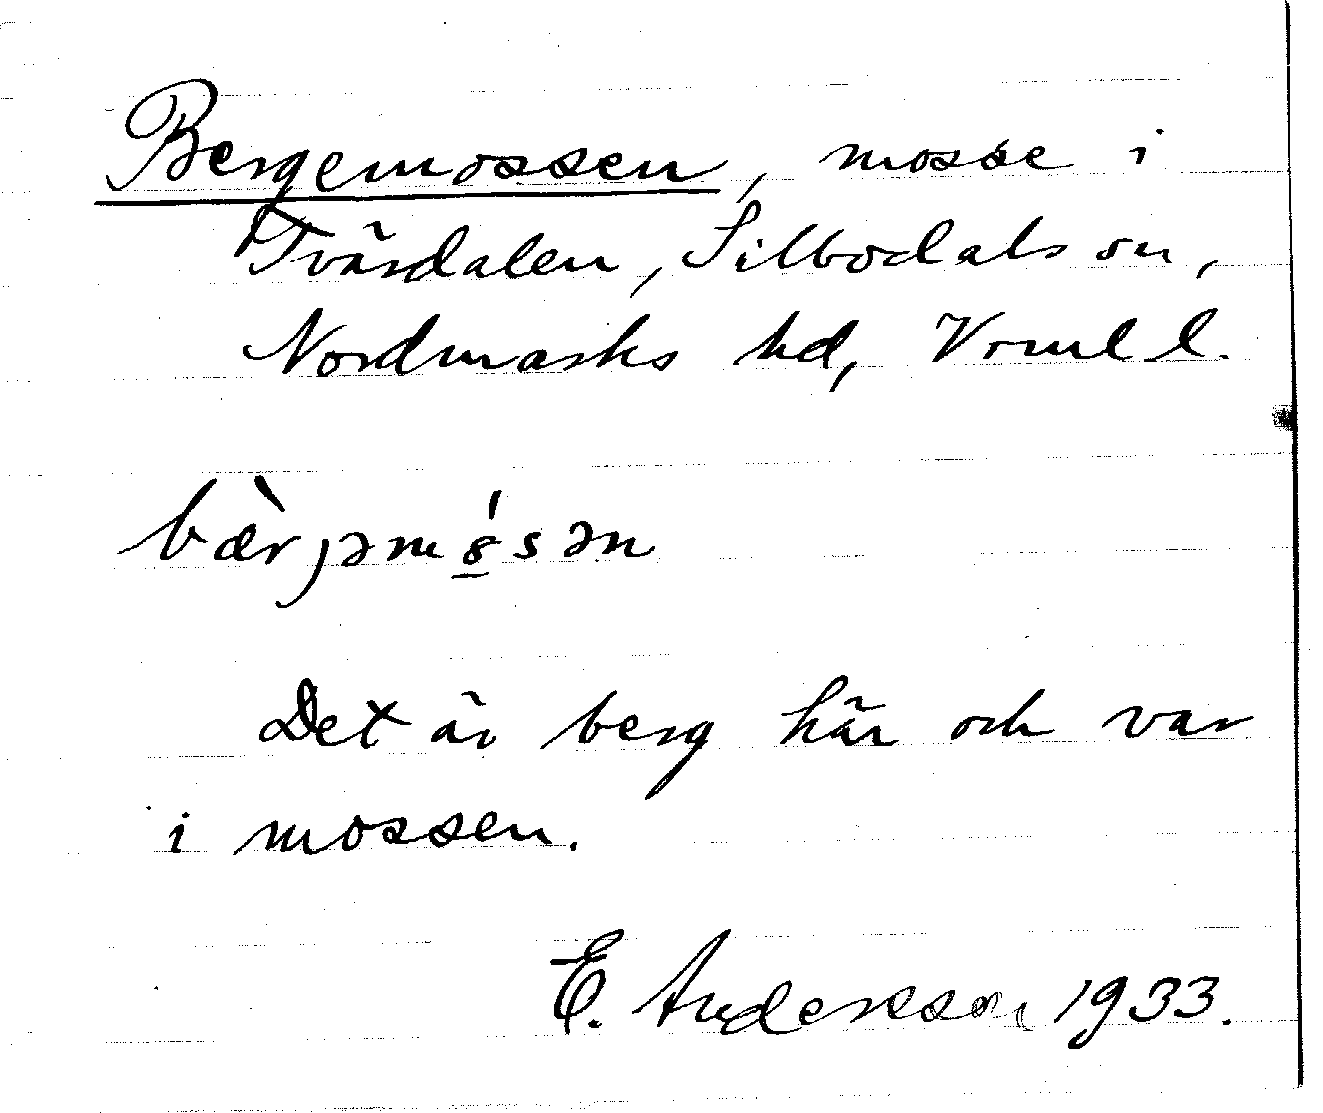 Bergemossen, mosse i
Tvärdalen, Silbodals sn,
Nordmarks hd, Vrml l.
bæ̀rjəm8̲́sən
Det är berg här och var
i mossen.
E. Andersson 1933.